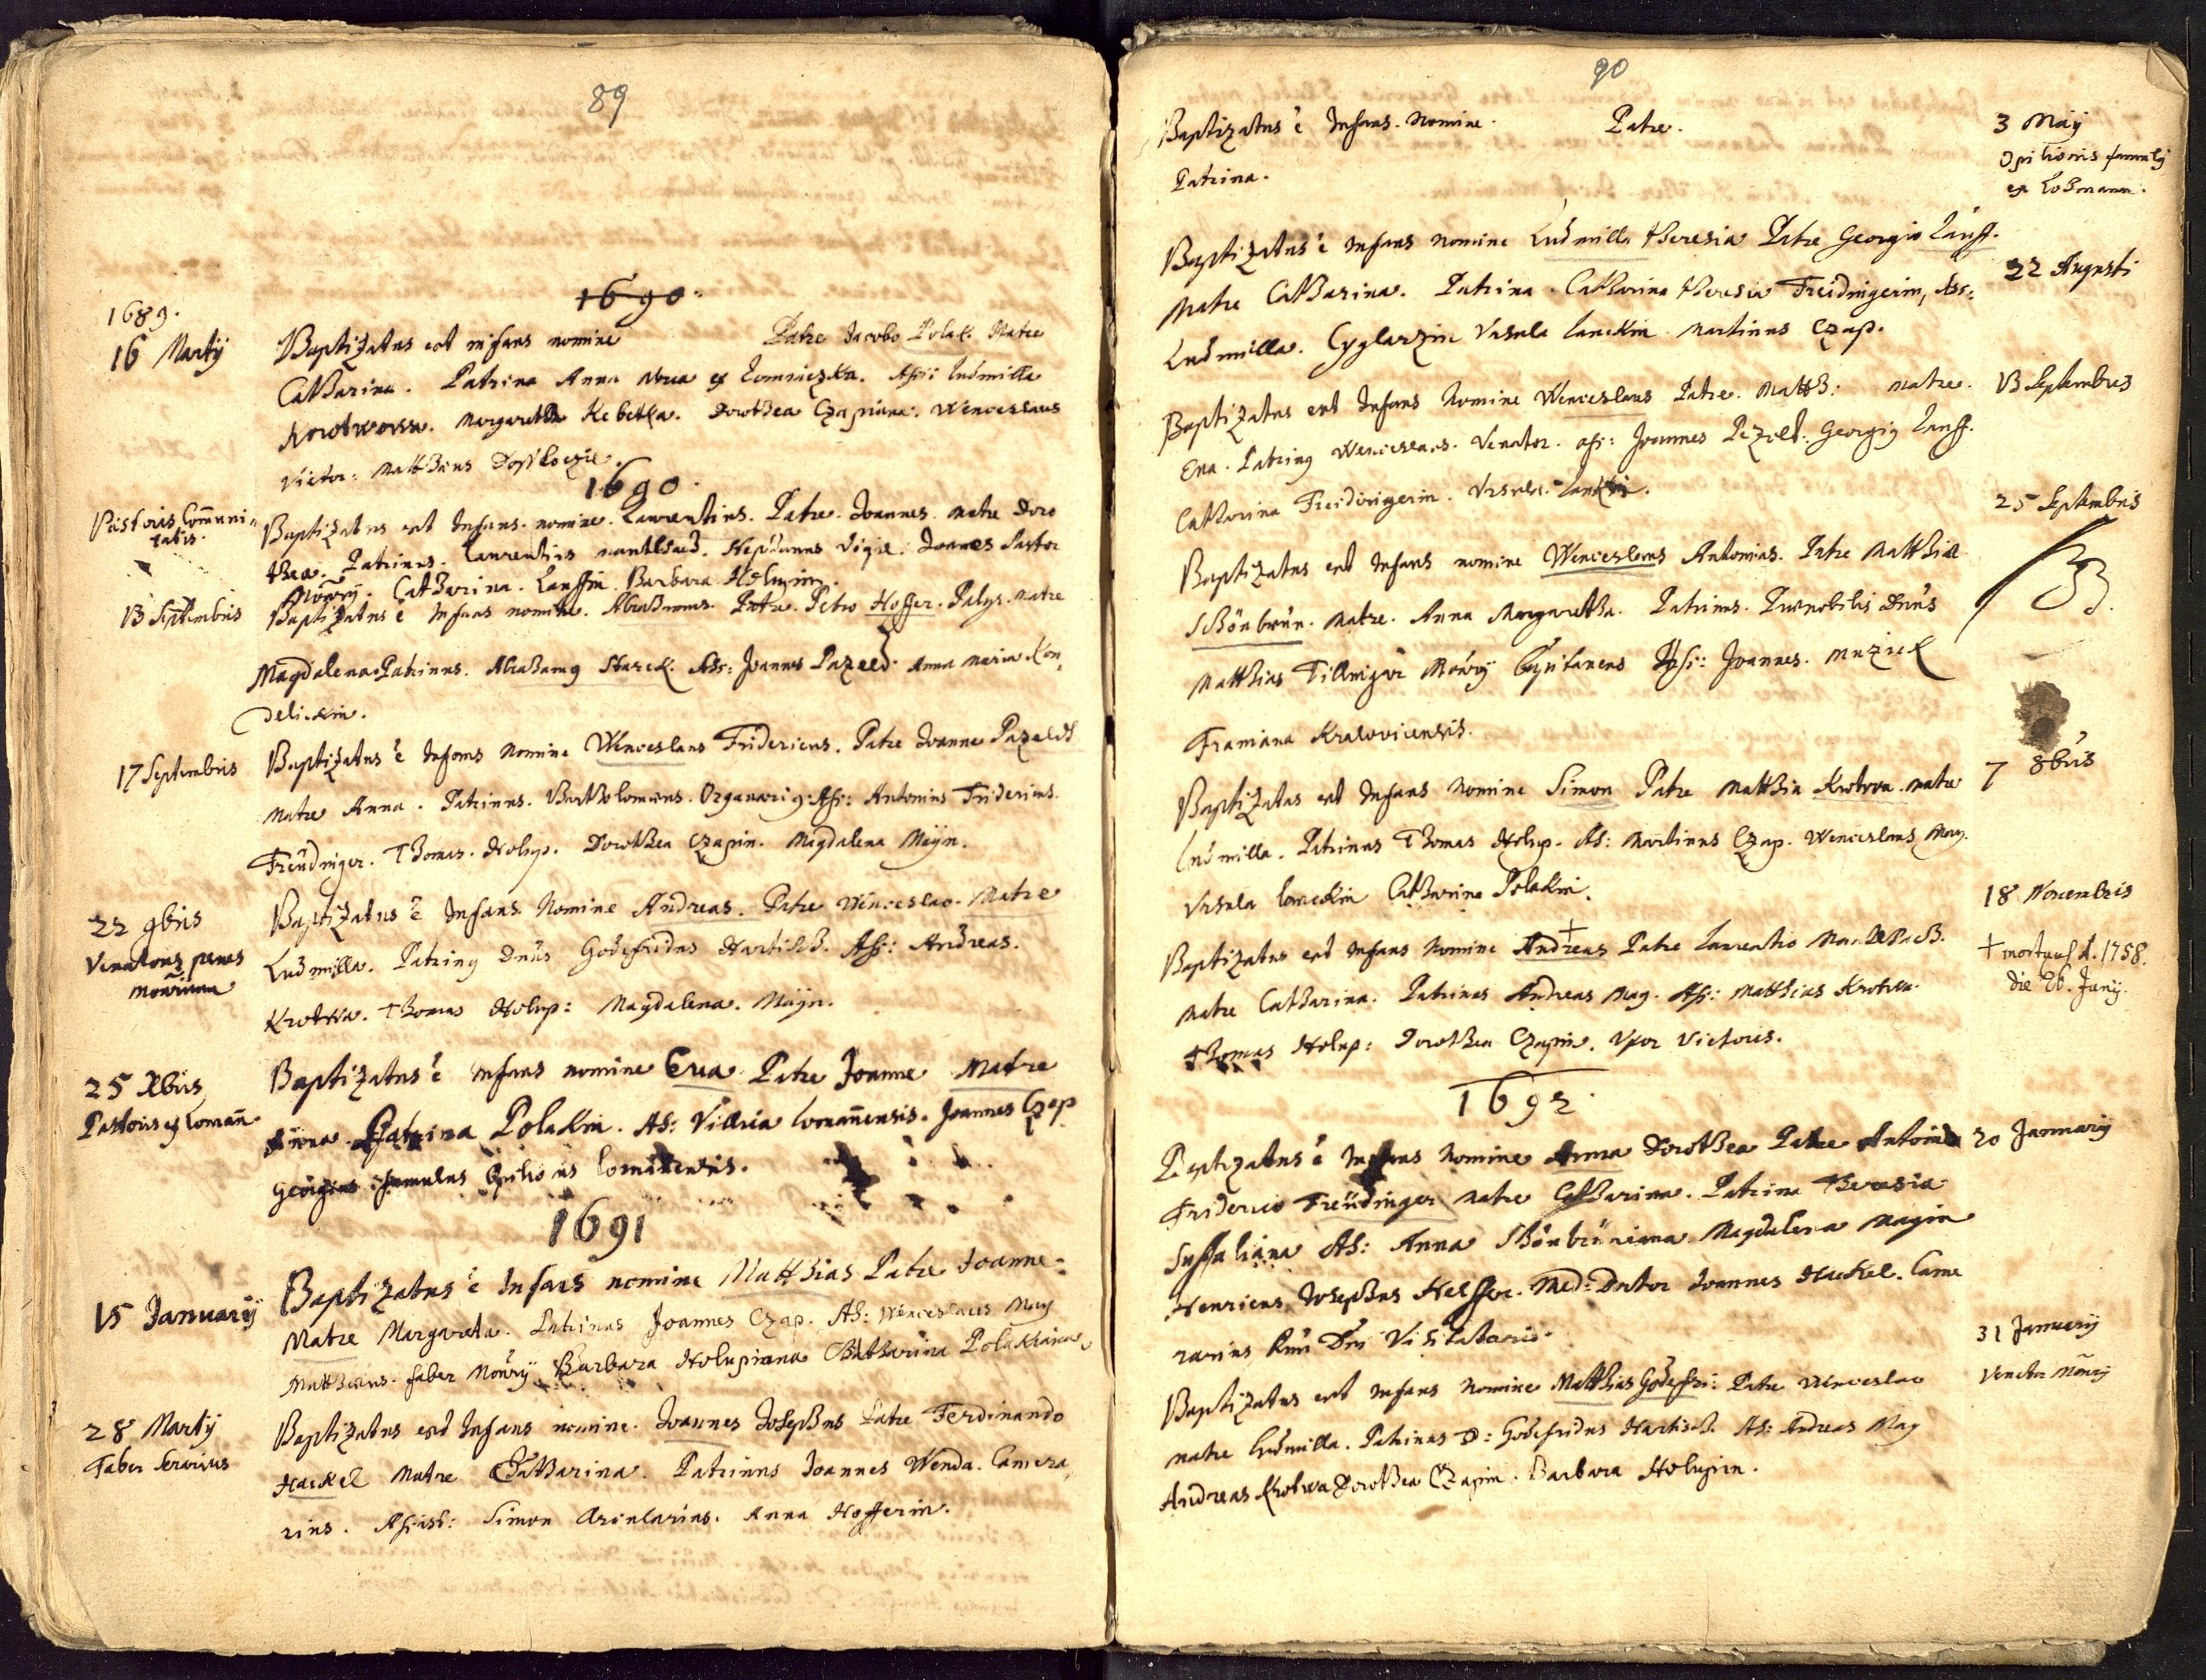 89
1690
1689.
16 Martij
Baptizatus est infans nomine Patre Jacobo Polak Matre
Catharina. Patrina Anna ex Lomniczka. Assi: Ludmilla
Margaretha Kebetka. Dorothea Czapiana. Wenceslaus
Victor: Matthaeus
1690.
Pastoris Communitatis.
Baptizatus est Infans. nomine. Laurentius. Patre. Joannes. matre Doro
thea. Patrinus. Laurentius Joannes Pastor
Catharina. Lauffin. Barbara Holupin.
13 Septembris
Baptizatus ē Infans nomine. Abrahamus. Patre. Petro Hoffer. Matre
Magdalena. Patrinus. Abrahamq Starck. Ass: Joannes Pazeld. Anna Maria Kon,
delickin.
17 Septembris
Baptizatus ē Infans Nomine Wenceslaus Fridericus. Patre Joanne Pazeldt
Matre Anna. Patrinus. Bartholomaeus. Organariq. Ass: Antonius Fridericus.
Freüdinger. Thomas. Holup. Dorothea Czapin. Magdalena Mayn.
22 9bris
Venatoris penes
Monrium
Baptizatus ē Infans Nomine Andreas. Patre Wenceslao. Matre
Ludmilla. Patrinq Dnus Godefridus Hartisch. Ass: Andreas.
Krotwa. Thomas Holup: Magdalena. Mayn.
25 Xbris
Pastoris ex Loman
Baptizatus ē Infans nomine Eva Patre Joanne Matre
Anna. Patrina Polakin. As: Villica Lomanensis. Joannes Czap
Georgius famulus Opilionis Lomanensis.
1691
15 Januarij
Baptizatus ē Infans nomine Matthias Patre Joanne
Matre Margareta. Patrinus Joannes Czap. As: Wenceslaus May
Matthaeus. faber Mon̄rij Barbara Holupiana Catharina Polakiana
28 Martij
Faber Serarius
Baptizatus est Infans nomine. Joannes Josephus Patre Ferdinando
Hackel Matre Catharina. Patrinus Joannes Wenda. Camera
rius. Assist: Simon Arcularius. Anna Hofferin.
90
Baptizatus ē Infans. Nomine. Patre.
Patrina.
3 Maij
Opilionis famuly
ex Lohmann.
Baptizatus ē Infans Nomine Ludmilla Theresia Patre Georgio Lauff.
Matre Catharina. Patrina. Catharina Theresia Freidingerin, Ass:
Ludmilla. Cyglarzin Vrsula Lanckin Martinus Czap.
22 Augusti
Baptizatus est Infans Nomine Wenceslaus Patre. Matth: Matre.
Eva. Patrinq Wenceslaus. Venator. ass: Joannes Pezolt. Georgiq Lauff.
Catharina Freidingerin. Vrsula.
13 Septembris
Baptizatus est Infans nomine Wenceslaus Antonius. Patre Matthia
Schönbrün. Matre. Anna Margaretha. Patrinus. Praenobilis Dnus
Matthias Mon̄rij Capitaneus Assi: Joannes. Muzick
Framiana Kralovicensis.
25 Septembris
Baptizatus est Infans Nomine Simon Patre Matthia Krotwa. Matre
Ludmilla. Patrinus Thomas Holup. As: Martinus Czap. Wenceslaus May.
Vrsula Lanckin Catharina Polakin.
7 8bris
Baptizatus est Infans Nomine Andreas Patre Laurentio
Matre Catharina. Patrinus Andreas May. Ass: Matthias Krotwa.
Thomas Holup: Dorothea Czapin. Vxor Victoris.
18 Novembris
† mortuus A. 1758.
die 26. Junij.
1692
Baptizatus ē Infans Nomine Anna Dorothea Patre Antonio
Friderico Freüdinger Matre Catharina. Patrina Theresia
As: Anna Schönbrüniana Magdalena Mayin
Henricus Josephus Helffer. Med: Doctor Joannes Hackel. Came
rarius Rmi Dni Visitatoris.
20 Januarij
Baptizatus est Infans Nomine Matthias Godefri: Patre Wenceslao
Matre Ludmilla. Patrinus D: Godefridus Hartisch. As: Andreas May
Andreas Krotwa Dorothea Czapin. Barbara Holupin.
31 Januarij
Venator Mon̄rij